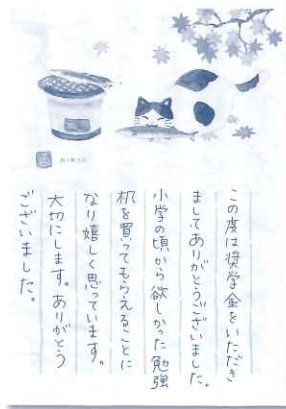 この度は奨学金をいただき
ましてありがとうございました。
小学の頃から欲しかった勉強
机を買ってもらえることに
なり嬉しく思っています。
大切にします。ありがとう
ございました。